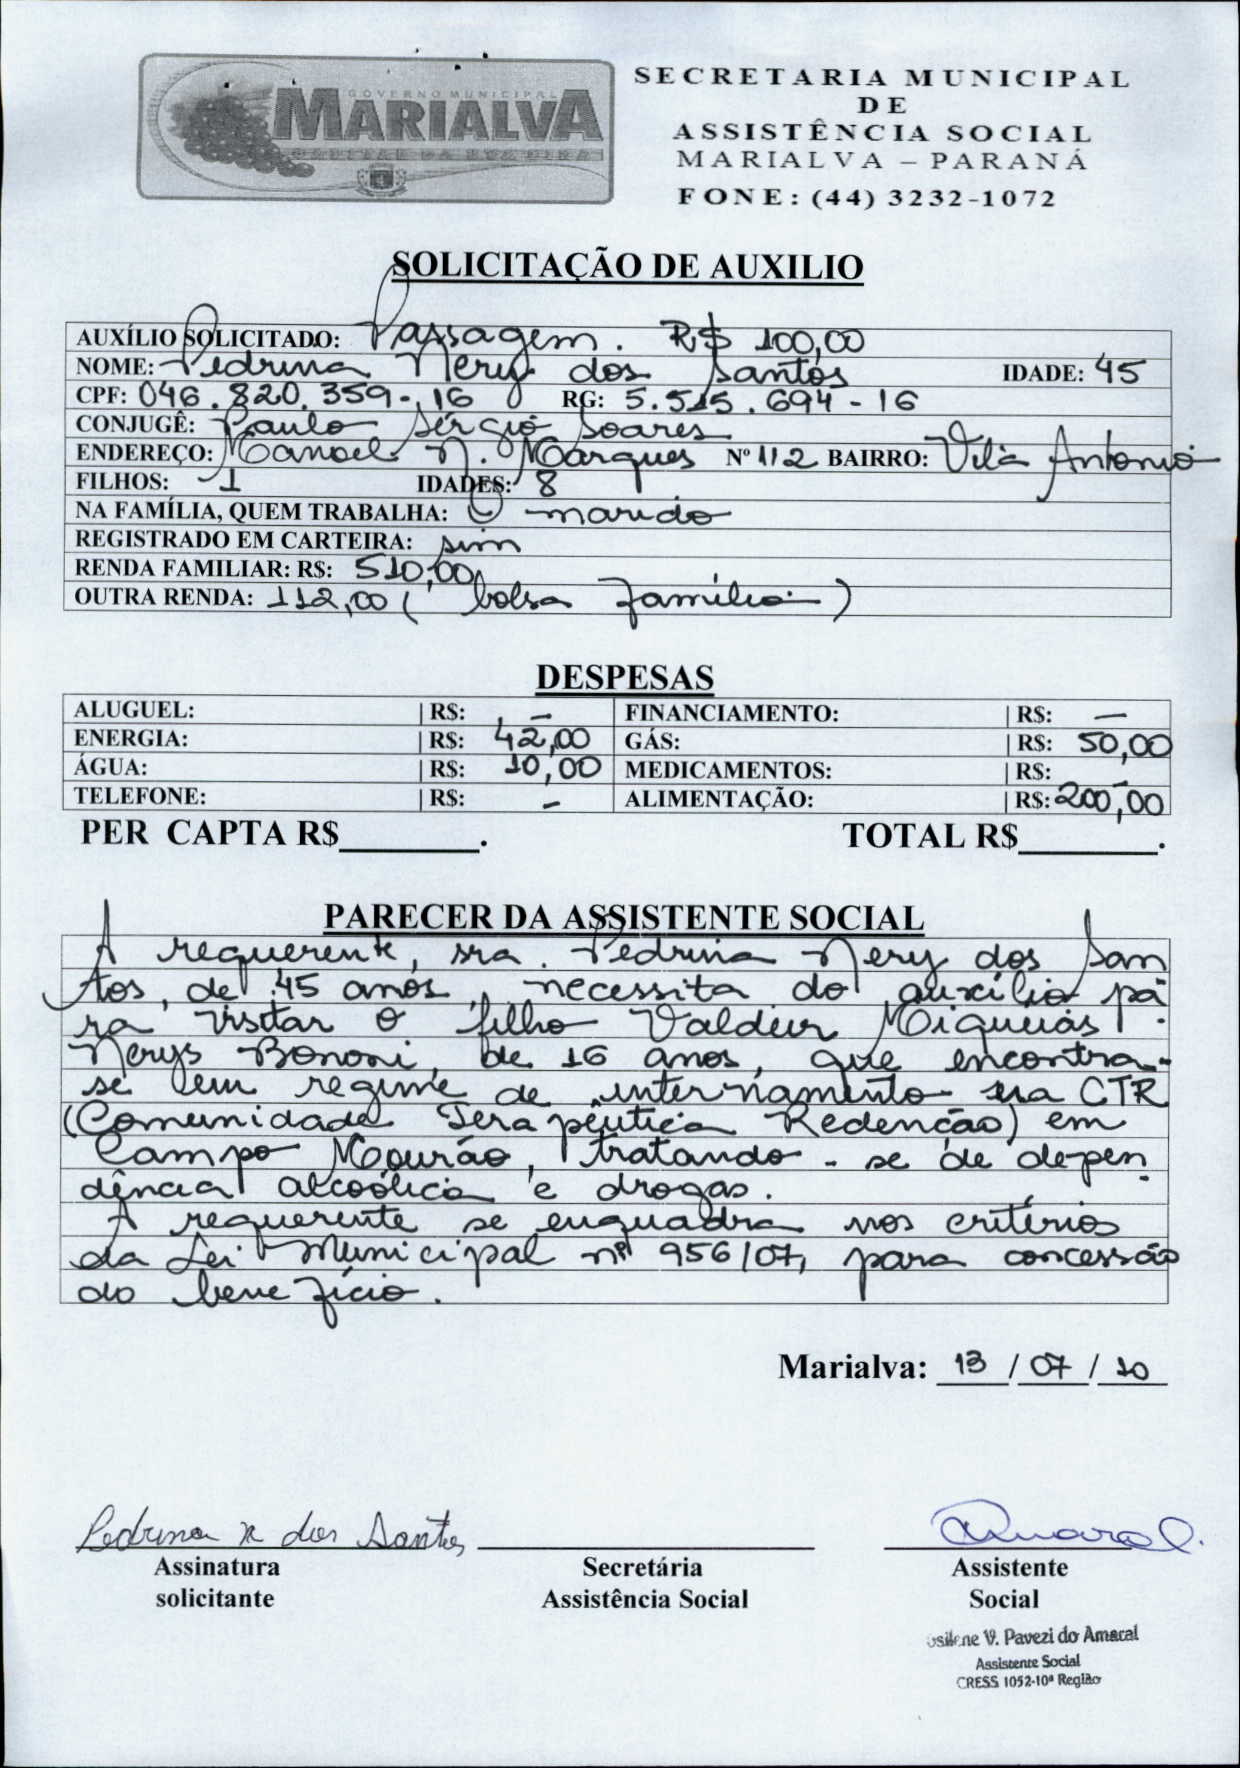 GOVERNO MUNICIPAL
MARIALVA
CAPITAL DA UVA FINA
SECRETARIA MUNICIPAL
DE
ASSISTÊNCIA SOCIAL
MARIALVA – PARANÁ
FONE: (44) 3232-1072
SOLICITAÇÃO DE AUXILIO
AUXÍLIO SOLICITADO: Passagem. R$ 100,00
NOME: Pedrina Nery dos Santos IDADE: 45
CPF: 046.820.359-16 RG: 5.515.694-16
CONJUGÊ: Paulo Sérgio Soares
ENDEREÇO: Manoel N. Marques Nº 112 BAIRRO: Vila Antonio
FILHOS: 1 IDADES: 8
NA FAMÍLIA, QUEM TRABALHA: O marido
REGISTRADO EM CARTEIRA: sim
RENDA FAMILIAR: R$: 510,00
OUTRA RENDA: 112,00 ( bolsa família )
DESPESAS
ALUGUEL: | R$: – FINANCIAMENTO: | R$: –
ENERGIA: | R$: 42,00 GÁS: | R$: 50,00
ÁGUA: | R$: 10,00 MEDICAMENTOS: | R$: –
TELEFONE: | R$: – ALIMENTAÇÃO: | R$: 200,00
PER CAPTA R$________. TOTAL R$________.
PARECER DA ASSISTENTE SOCIAL
A requerente, sra. Pedrina Nery dos San
tos, de 45 anos, necessita do auxílio pa
ra visitar o filho Valdeir Miquéias
Nerys Bononi, de 16 anos, que encontra-
se em regime de internamento na CTR
(Comunidade Terapêutica Redenção) em
Campo Mourão, tratando-se de depen
dência alcoólica e drogas.
A requerente se enquadra nos critérios
da Lei Municipal nº 956/07, para concessão
do benefício.
Marialva: 13 / 07 / 10
Pedrina N dos Santos
Amaral.
Assinatura Secretária Assistente
solicitante Assistência Social Social
V. Pavezi do Amaral
Assistente Social
CRESS 1052-10ª Região